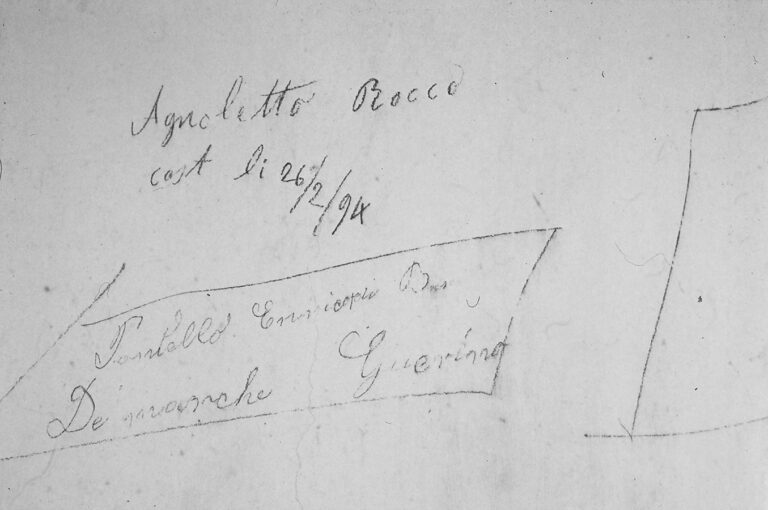 Agnoletto Rocco
cast li 26/2/94
Tontello
De marche Guerino